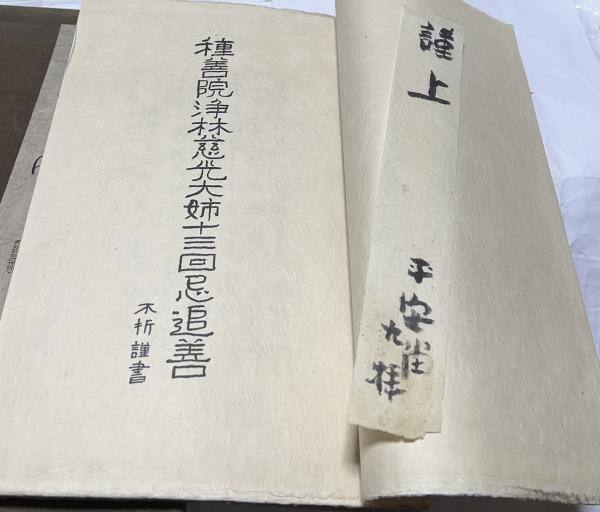 謹上
平安堂
九拝
種善院浄林慈光大姉十三回忌追善
不折謹書